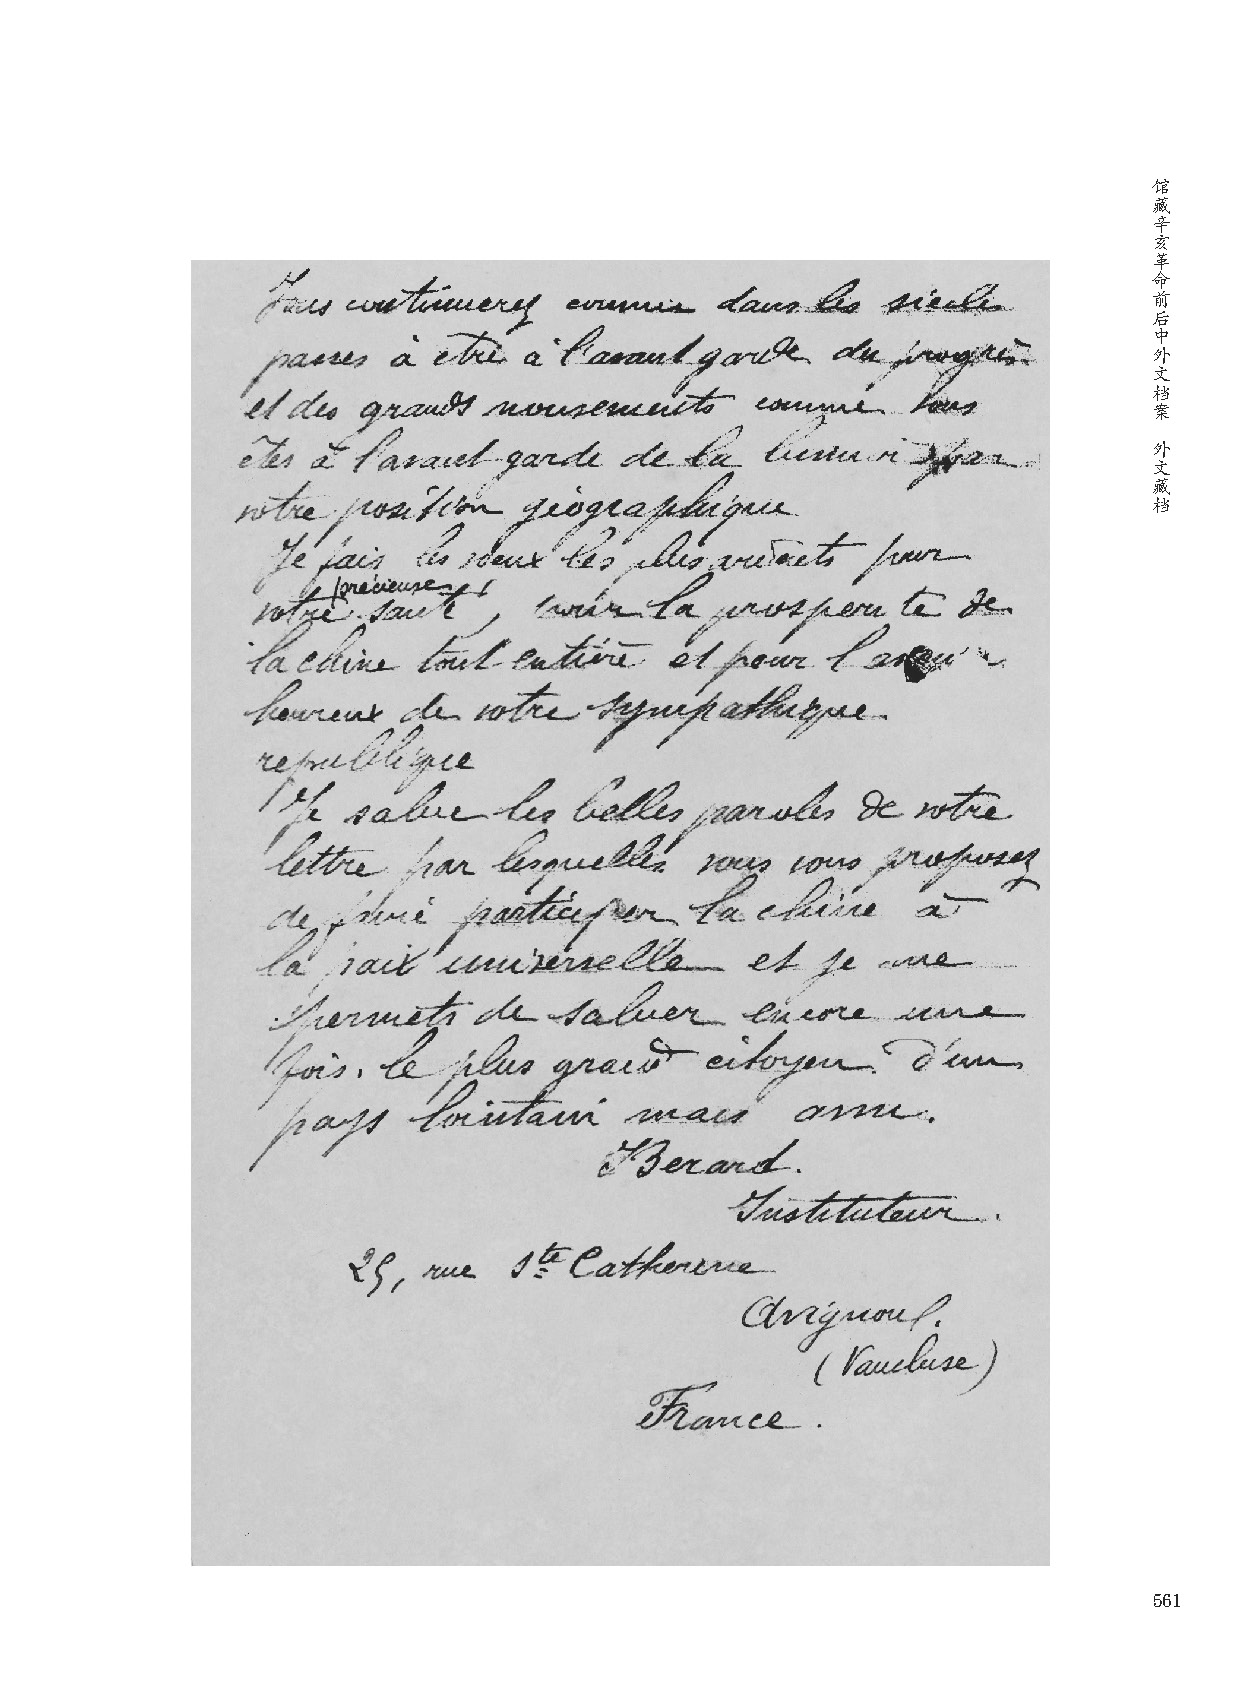 Vous continuerez comme dans les siecles
passes à être à l'avant garde du progrès
et des grands mouvements comme vous
êtes à l'avant garde de la lumière par
votre position géographique
Je fais les vœux les plus ardents pour
votre précieuse santé, pour la prosperité de
la chine tout entière et pour l'avenir
heureux de votre sympathique
republique
Je salue les belles paroles de votre
lettre par lesquelles vous vous proposez
de faire participer la chine à
la paix universelle et je me
permets de saluer encore une
fois, le plus grand citoyen d'un
pays lointain mais ami.
Berard.
Instituteur.
25, rue Ste Catherine
Avignon.
(Vaucluse)
France.
馆藏辛亥革命前后中外文档案 外文藏档
561